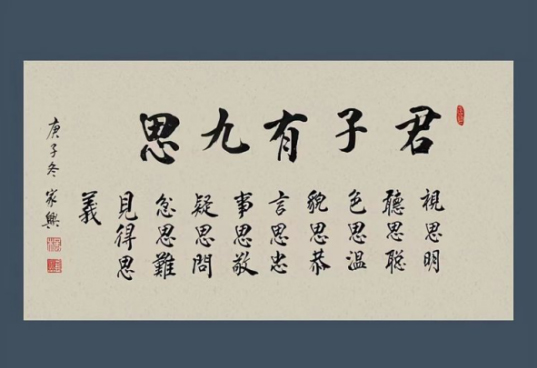 君子有九思
視思明
聽思聰
色思溫
貌思恭
言思忠
事思敬
疑思問
忿思難
見得思
義
庚子冬 家興